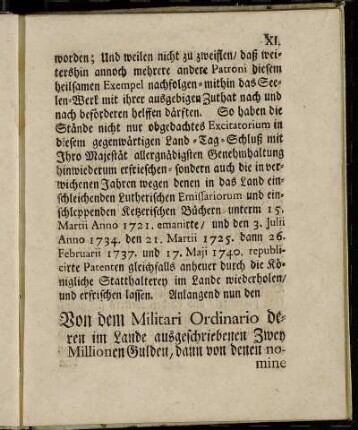 XI.
worden; Und weilen nicht zu zweifflen/ daß wei-
tershin annoch mehrere andere Patroni diesem
heilsamen Exempel nachfolgen-mithin das See-
len-Werk mit ihrer ausgebigen Zuthat nach und
nach beförderen helffen därften. So haben die
Stände nicht nur obgedachtes Excitatorium in
diesem gegenwärtigen Land-Tag-Schluß mit
Ihro Majestät allergnädigsten Genehmhaltung
hinwiederum erfrischen-sondern auch die in ver-
wichenen Jahren wegen denen in das Land ein-
schleichenden Lutherischen Emissariorum und ein-
schleppenden Ketzerischen Büchern unterm 15.
Martii Anno 1721. emanirte/ und den 3. Julii
Anno 1734. den 21. Martii 1725. dann 26.
Februarii 1737. und 17. Maji 1740. republi-
cirte Patenten gleichfalls anheuer durch die Kö-
nigliche Statthalterey im Lande wiederholen/
und erfrischen lassen. Anlangend nun den
Von dem Militari Ordinario de-
ren im Lande ausgeschriebenen Zwey
Millionen Gulden, dann von denen no-
mine